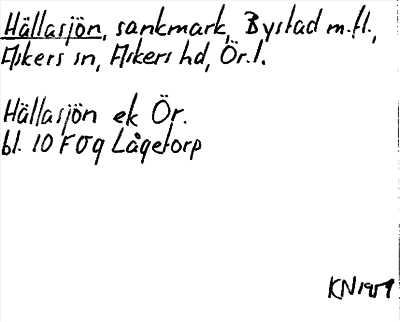 Hällasjön, sankmark, Bystad m.fl.,
Askers sn, Askers hd, Ör.l.
Hällasjön ek Ör.
bl. 10 F 0 g Lågetorp
KN 1959